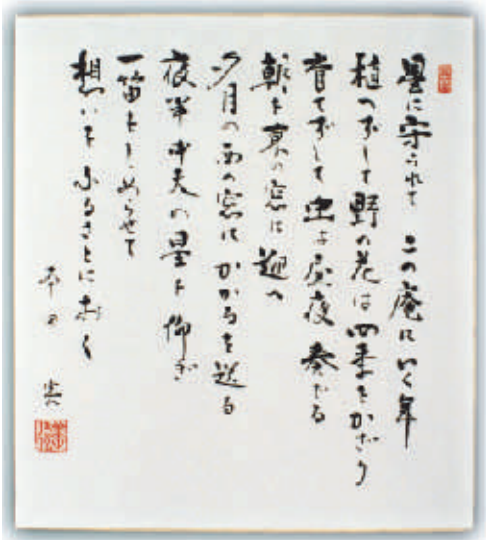 星に守られて この庵にいく年
植へずして 野の花は四季をかざり
育てずして 虫は 奏でる
朝を東の窓に迎へ
夕月の西の窓にかかるを送る
夜半中天の星を仰ぎ
一笛を
想いをふるさとにおく
本田 実